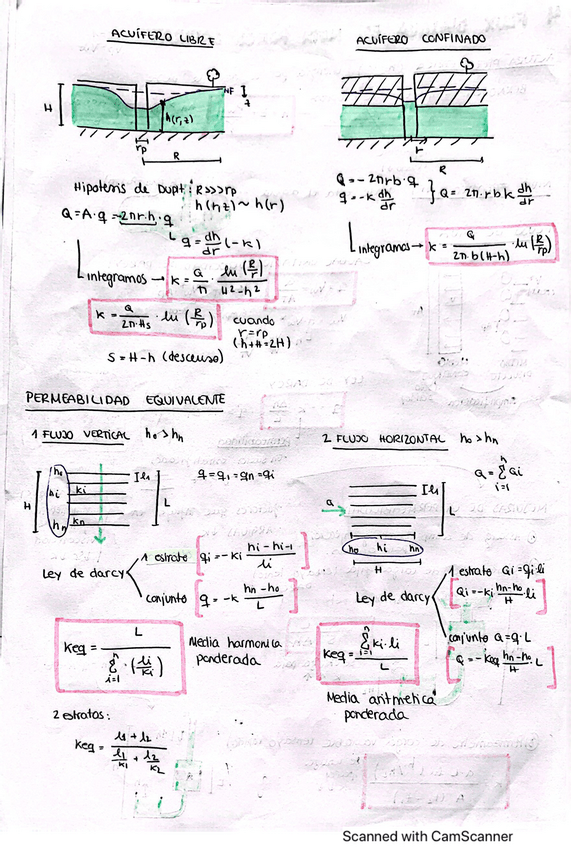 ACUÍFERO LIBRE
H
NF
z
h(r,z)
rp
R
Hipótesis de Dupit: R>>>rp
h(r,z) ~ h(r)
Q = A·q = 2πr·h·q
q = dh/dr (-k)
integramos → k = Q/π · ln(R/r)/(H²-h²)
k = Q/(2π·Hs) · ln(R/rp) cuando r=rp (h+H=2H)
s = H-h (descenso)
ACUÍFERO CONFINADO
r
R
Q = -2πrb·q
q = -k dh/dr } Q = 2π·rbk dh/dr
integramos → k = Q/(2π·b(H-h)) · ln(R/rp)
PERMEABILIDAD EQUIVALENTE
1 FLUJO VERTICAL h0>hn
H
hi
hn
ki
kn
I l1
L
q = q1 = qn = qi
Ley de darcy
1 estrato [qi = -ki (hi-hi-1)/li]
conjunto [q = -k (hn-h0)/L]
Keq = L/(Σ i=1 n ·(li/ki))
Media harmonica ponderada
2 estratos:
Keq = (l1+l2)/(l1/k1 + l2/k2)
2 FLUJO HORIZONTAL h0>hn
Q = Σ i=1 n Qi
Q
I l1
L
h0 hi hn
H
Ley de darcy
1 estrato Qi = qi·li
[Qi = -ki (hn-h0)/H ·li]
conjunto Q = q·L
[Q = -keq (hn-h0)/H ·L]
Keq = (Σ i=1 n ki·li)/L
Media aritmetica ponderada
Scanned with CamScanner